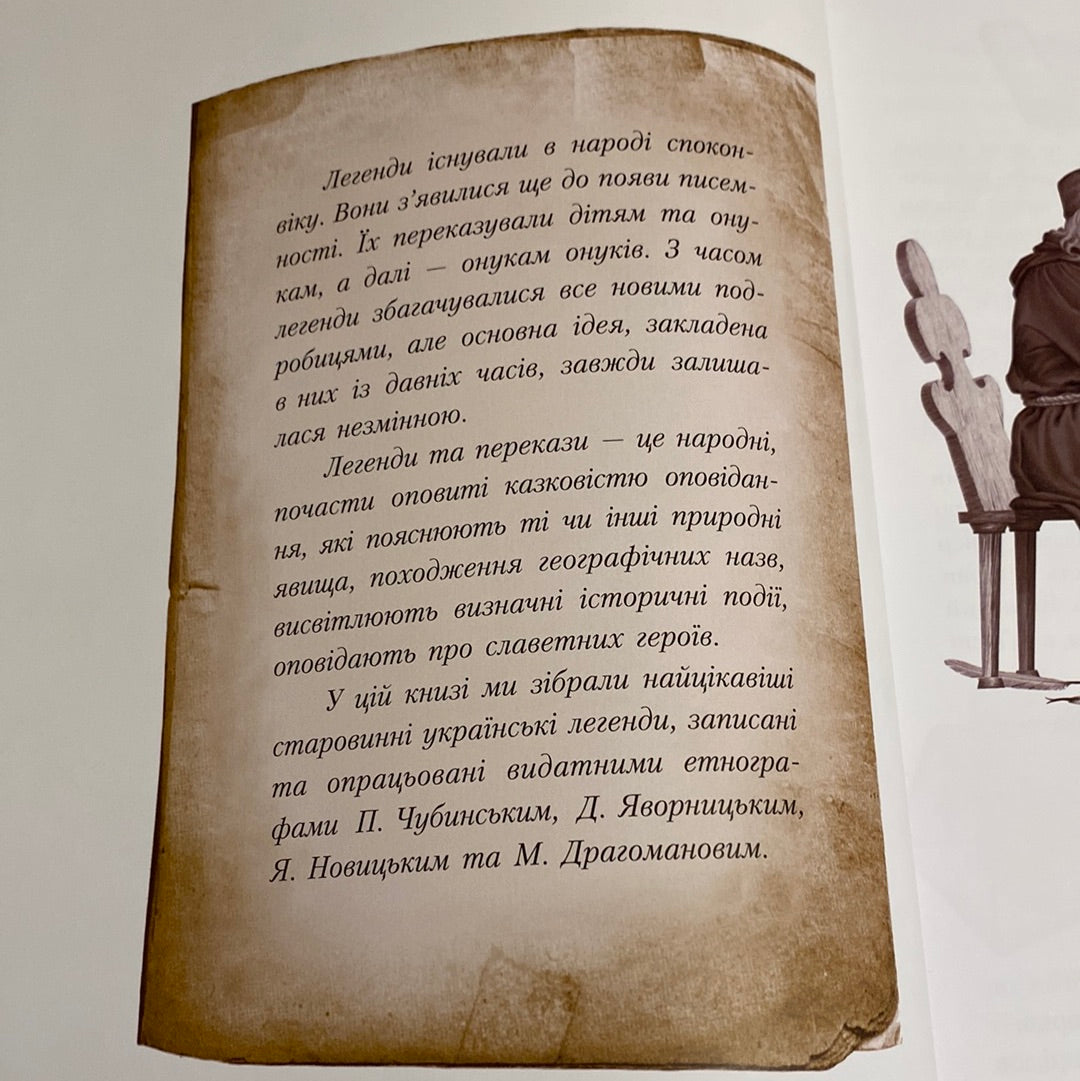 Легенди існували в народі спокон-
віку. Вони з’явилися ще до появи писем-
ності. Їх переказували дітям та ону-
кам, а далі — онукам онуків. З часом
легенди збагачувалися все новими под-
робицями, але основна ідея, закладена
в них із давніх часів, завжди залиша-
лася незмінною.
Легенди та перекази — це народні,
почасти оповиті казковістю оповідан-
ня, які пояснюють ті чи інші природні
явища, походження географічних назв,
висвітлюють визначні історичні події,
оповідають про славетних героїв.
У цій книзі ми зібрали найцікавіші
старовинні українські легенди, записані
та опрацьовані видатними етногра-
фами П. Чубинським, Д. Яворницьким,
Я. Новицьким та М. Драгомановим.